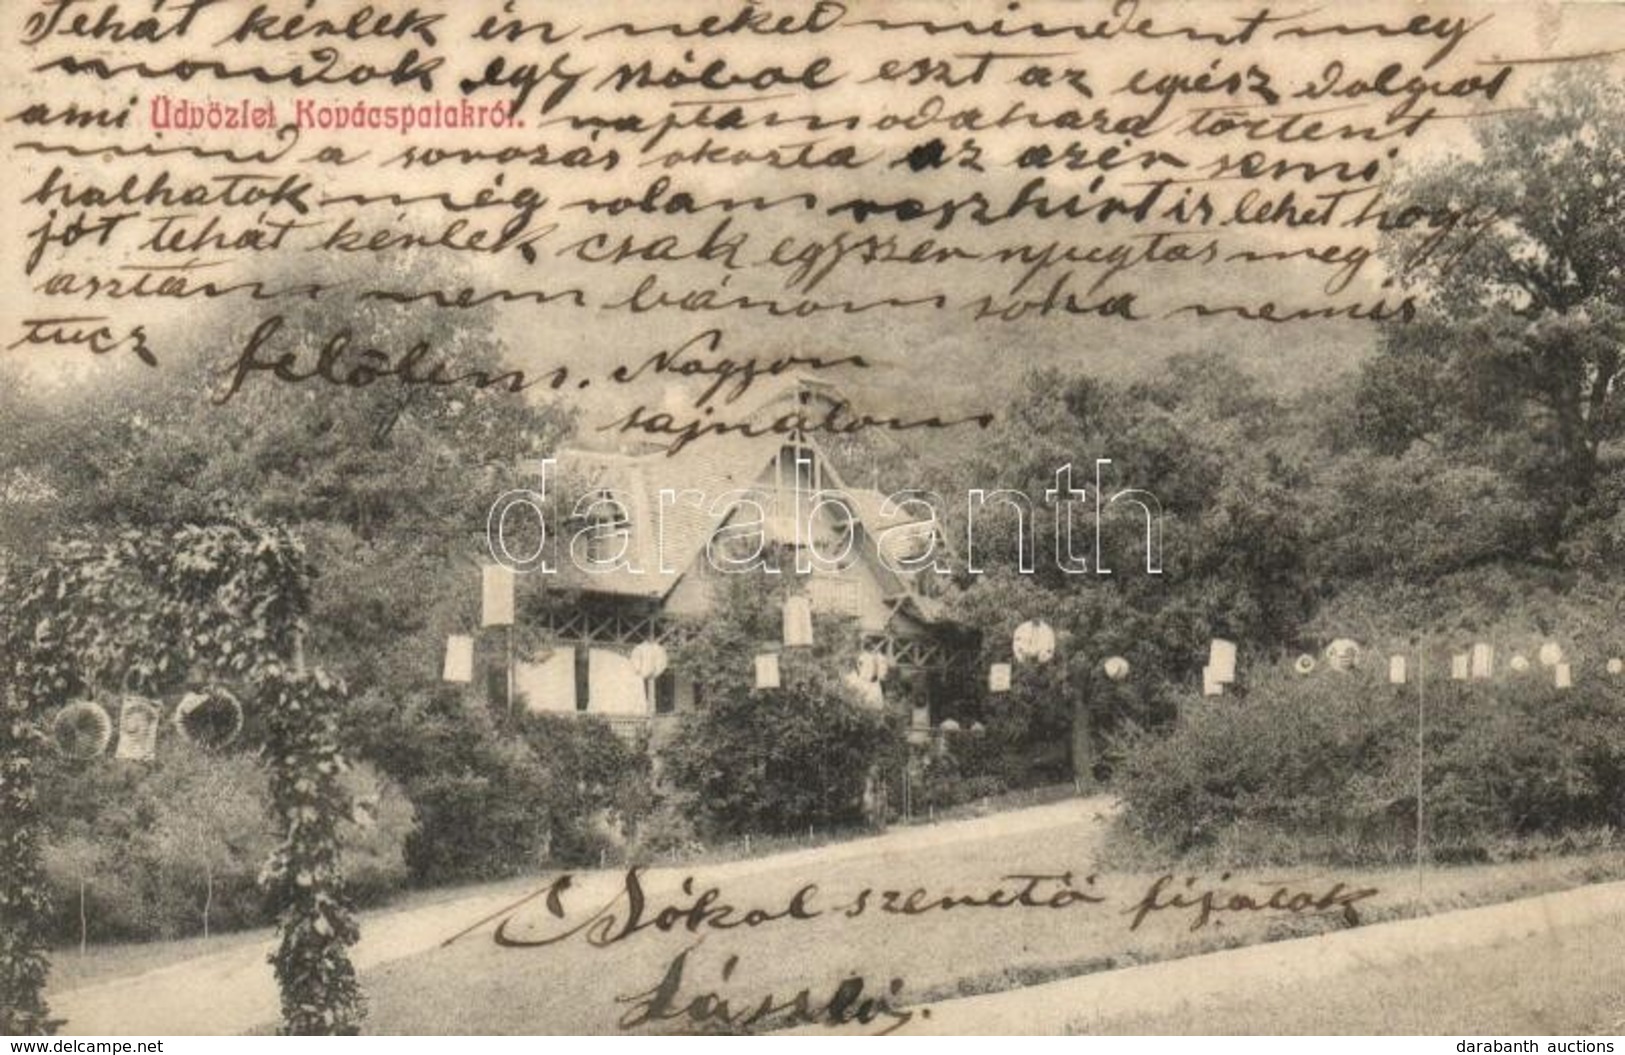 Tehát kérlek én neked mindent meg
mondok egy szóbol eszt az egész dolgrot
ami Üdvözlet Kovácspatakról. najtam odahaza törtent
mind a sorozás okozta az azér semi
halhatok még rolam roszhírt is lehet hogy
jót tehát kérlek csak egyszer nyugtas meg
asztán nem bánom soha nemis
tucz felölem. Nagyon
sajnálom
darabanth
Sókol szerető fijatok
László.
www.darabanth.com
darabanth auctions